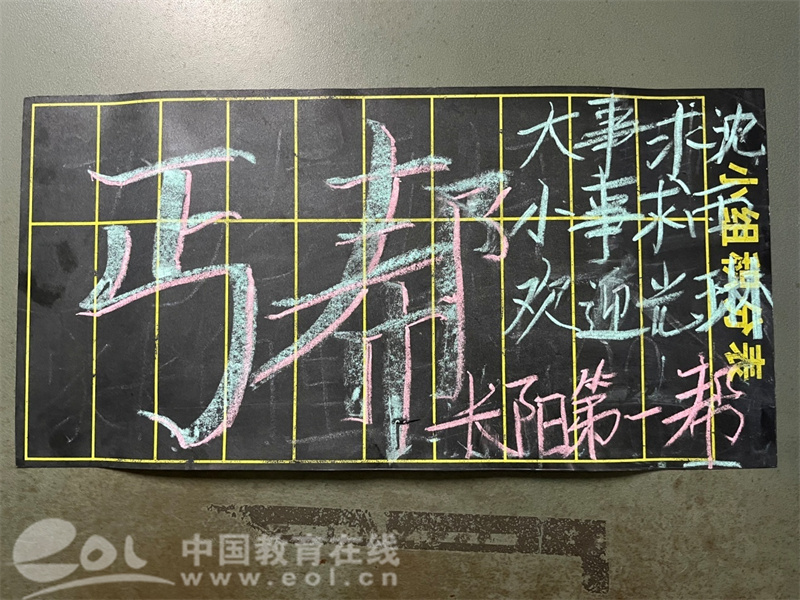 丐帮
大事求沈
小事求
欢迎光
长阳第一帮
小组积分表
eol 中国教育在线
www.eol.cn